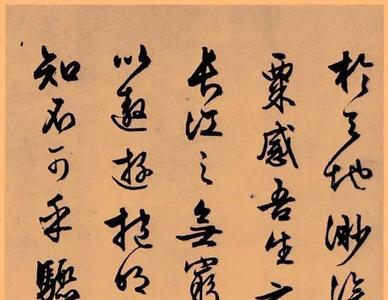 於天地渺滄
粟感吾生之
長江之無窮
以遨遊抱明
知不可乎驟